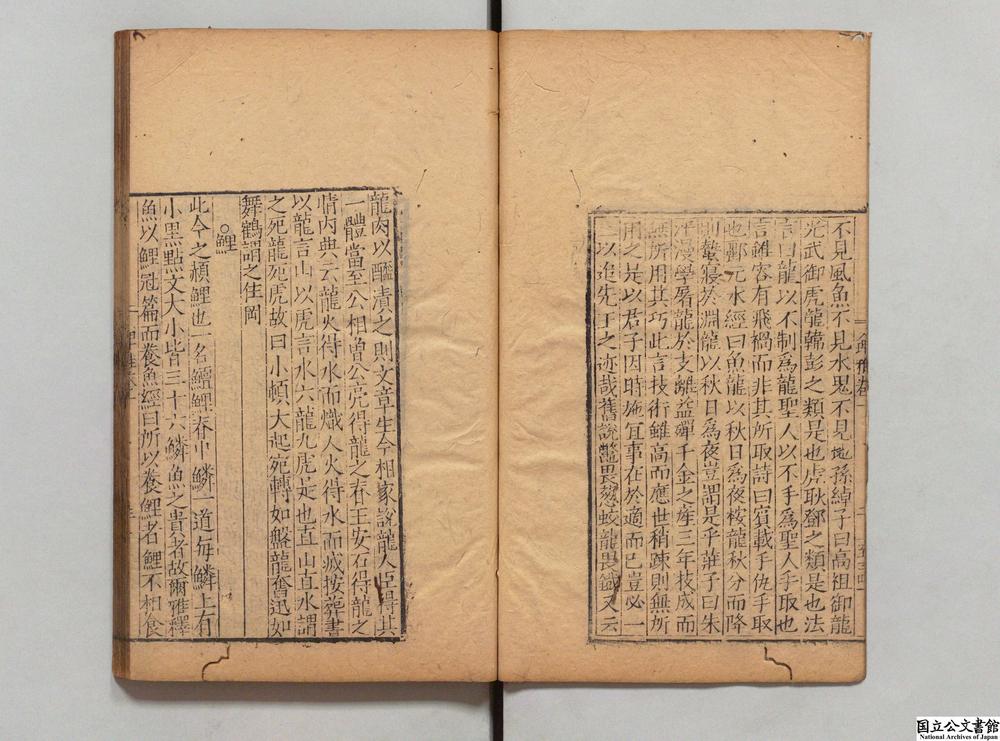 不見風魚不見水鬼不見地孫綽子曰高祖御龍
光武御虎龍韓彭之類是也虎耿鄧之類是也法
言曰龍以不制為龍聖人以不手為聖人手取也
言雖容有飛禍而非其所取詩曰賓載手仇手取
也酈元水經曰魚龍以秋日為夜按龍秋分而降
則蟄寢於淵龍以秋日為夜豈謂是乎莊子曰朱
泙漫學屠龍於支離益殫千金之產三年技成而
無所用其巧此言技術雖高而應世稍疎則無所
用之是以君子因時施宜事在於適而已豈必一
一以追先王之迹哉舊說鼈畏蛟龍畏鐵又云
龍肉以醯漬之則文章生今相家說龍人臣得其
一體當至公相曾公亮得龍之脊王安石得龍之
情內典云龍火得水而熾人火得水而滅按葬書
以龍言山以虎言水六龍九虎是也直山直水謂
之死龍死虎故曰小頓大起宛轉如盤龍奮迅如
舞鶴謂之住岡
○鯉
此今之赬鯉也一名鱣鯉脊中鱗一道每鱗上有
小黑點文大小皆三十六鱗魚之貴者故爾雅釋
魚以鯉冠篇而養魚經曰所以養鯉者鯉不相食
国立公文書館
National Archives of Japan